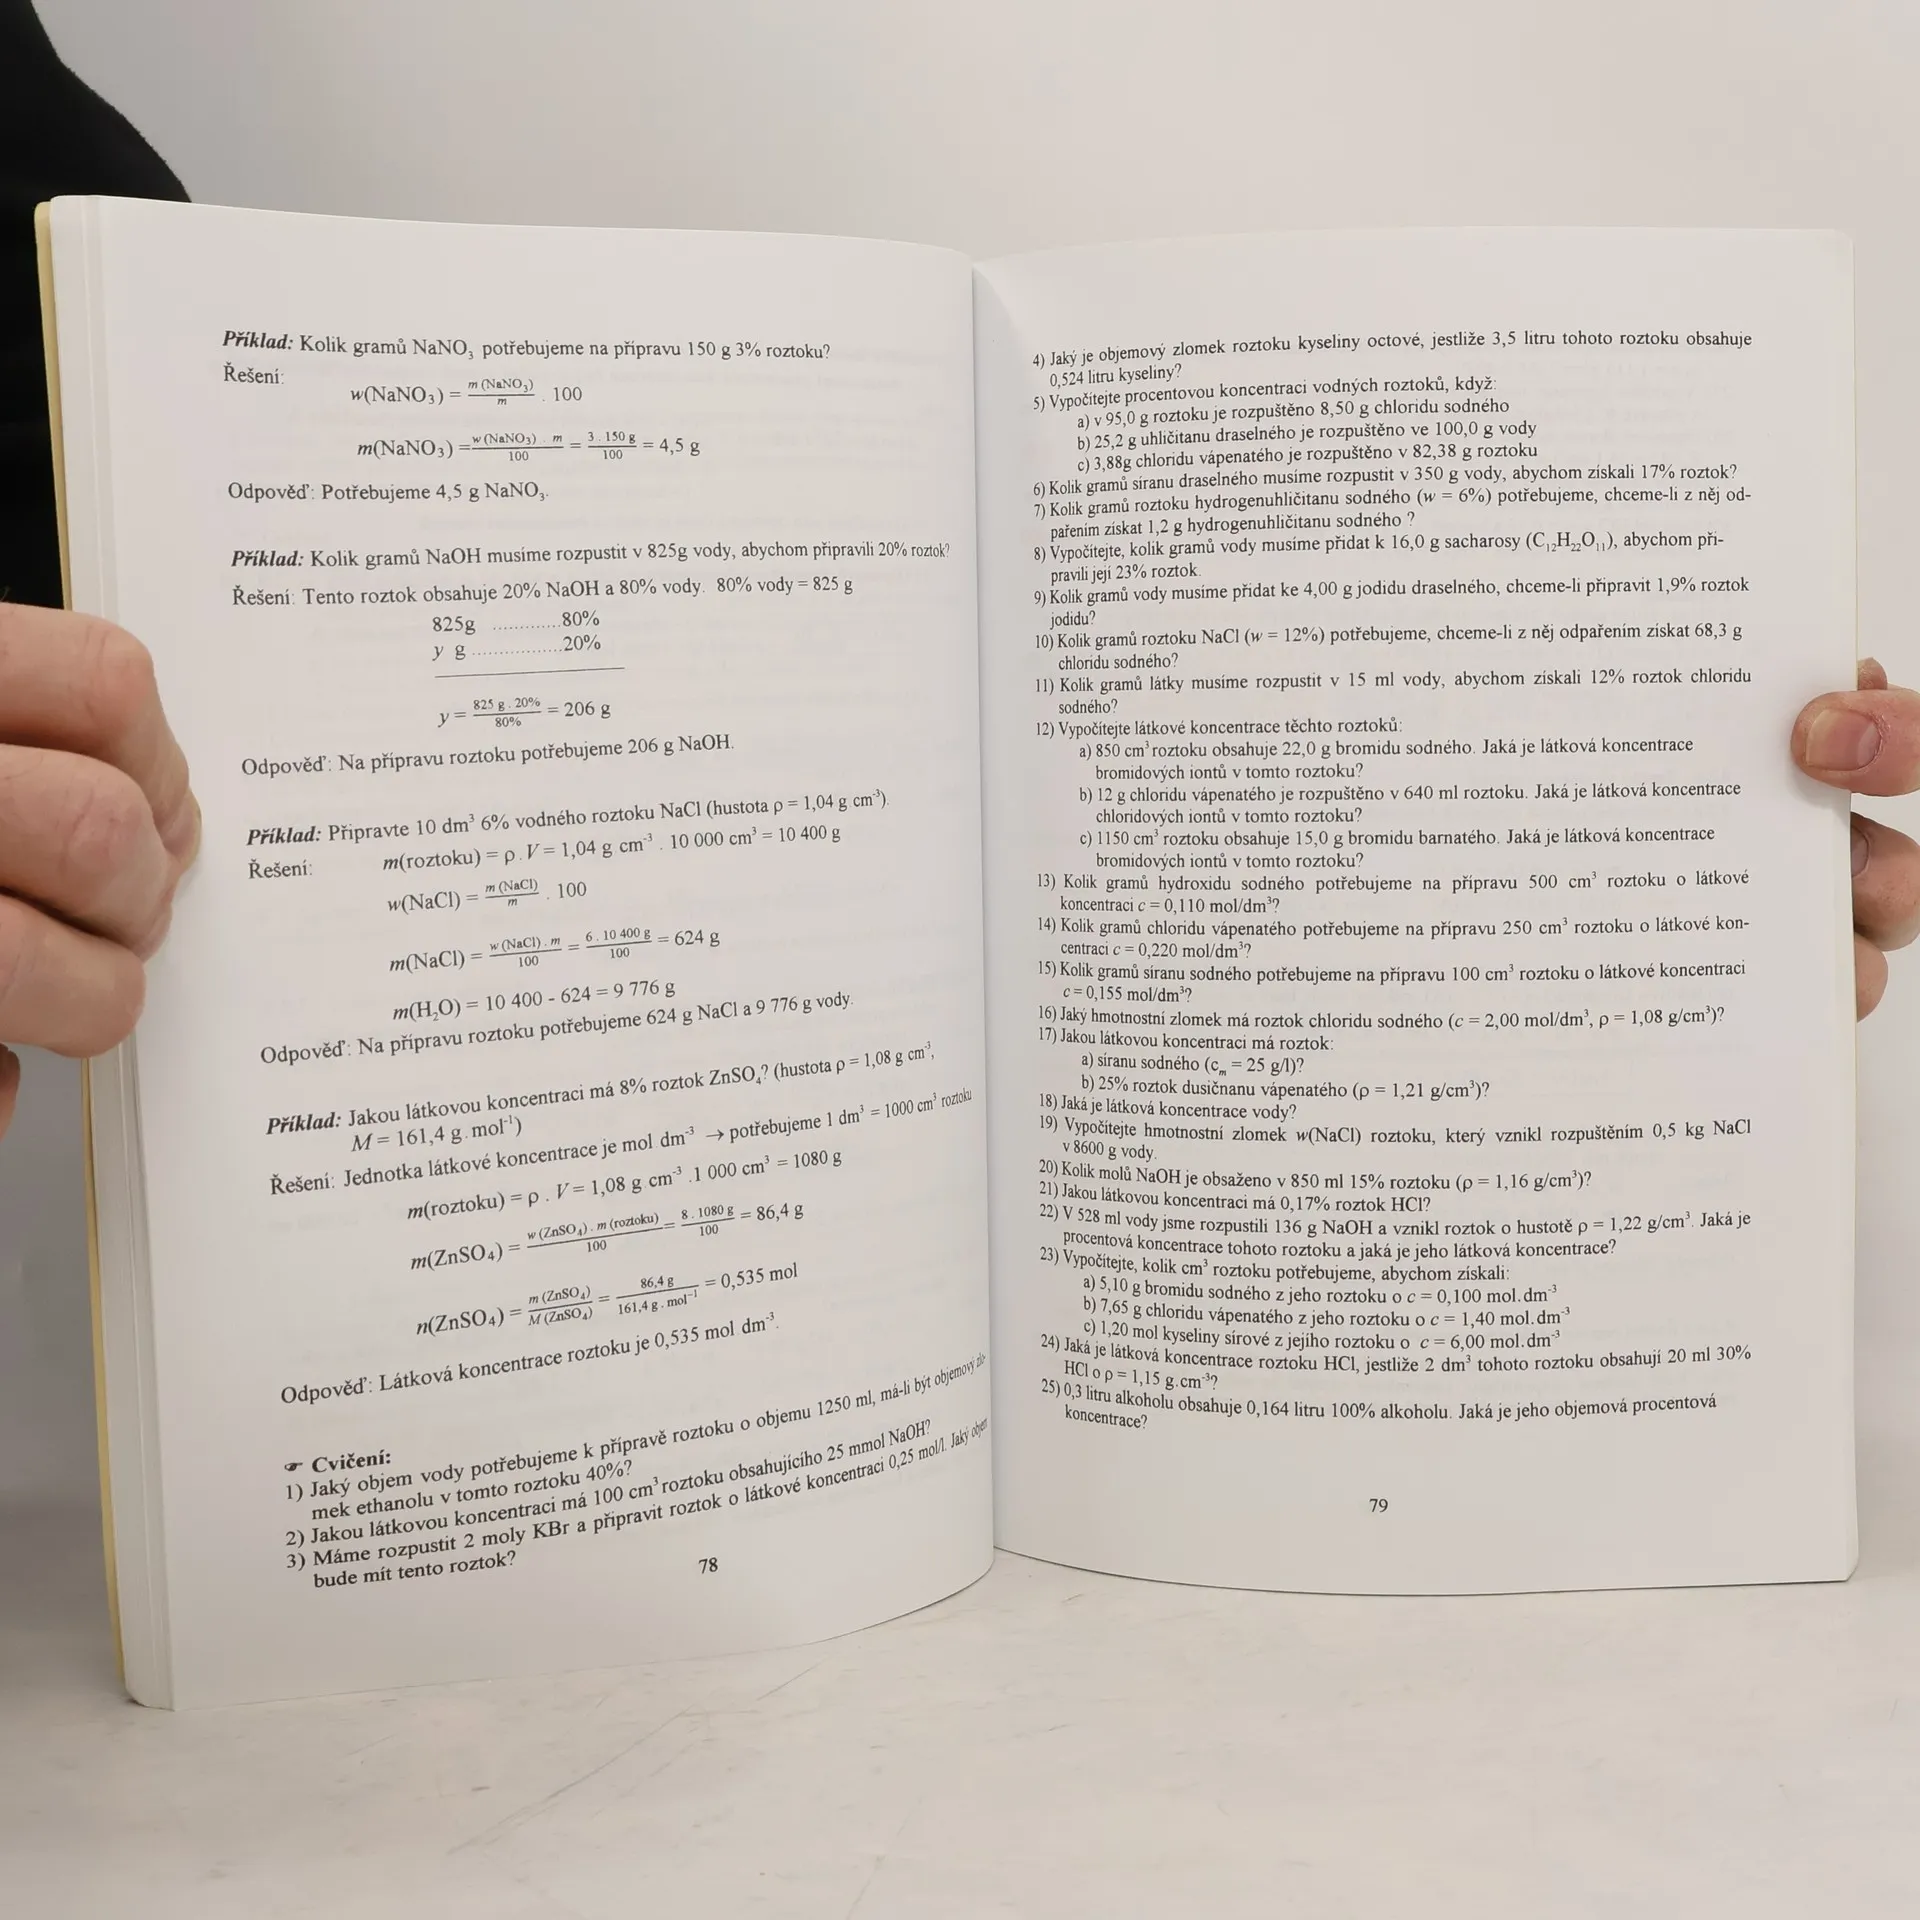 Příklad: Kolik gramů NaNO₃ potřebujeme na přípravu 150 g 3% roztoku?
Řešení:
w(NaNO₃) = m (NaNO₃) / m . 100
m(NaNO₃) = w (NaNO₃) . m / 100 = 3 . 150 g / 100 = 4,5 g
Odpověď: Potřebujeme 4,5 g NaNO₃.
Příklad: Kolik gramů NaOH musíme rozpustit v 825g vody, abychom připravili 20% roztok?
Řešení: Tento roztok obsahuje 20% NaOH a 80% vody. 80% vody = 825 g
825g .............80%
y g .................20%
y = 825 g . 20% / 80% = 206 g
Odpověď: Na přípravu roztoku potřebujeme 206 g NaOH.
Příklad: Připravte 10 dm³ 6% vodného roztoku NaCl (hustota ρ = 1,04 g cm⁻³).
Řešení: m(roztoku) = ρ . V = 1,04 g cm⁻³ . 10 000 cm³ = 10 400 g
w(NaCl) = m (NaCl) / m . 100
m(NaCl) = w (NaCl) . m / 100 = 6 . 10 400 g / 100 = 624 g
m(H₂O) = 10 400 - 624 = 9 776 g
Odpověď: Na přípravu roztoku potřebujeme 624 g NaCl a 9 776 g vody.
Příklad: Jakou látkovou koncentraci má 8% roztok ZnSO₄? (hustota ρ = 1,08 g cm⁻³,
M = 161,4 g. mol⁻¹)
Řešení: Jednotka látkové koncentrace je mol dm⁻³ → potřebujeme 1 dm³ = 1000 cm³ roztoku
m(roztoku) = ρ . V = 1,08 g cm⁻³ .1 000 cm³ = 1080 g
m(ZnSO₄) = w (ZnSO₄) . m (roztoku) / 100 = 8 . 1080 g / 100 = 86,4 g
n(ZnSO₄) = m (ZnSO₄) / M (ZnSO₄) = 86,4 g / 161,4 g . mol⁻¹ = 0,535 mol
Odpověď: Látková koncentrace roztoku je 0,535 mol dm⁻³.
☞ Cvičení:
1) Jaký objem vody potřebujeme k přípravě roztoku o objemu 1250 ml, má-li být objemový zlo-
mek ethanolu v tomto roztoku 40%?
2) Jakou látkovou koncentraci má 100 cm³ roztoku obsahujícího 25 mmol NaOH?
3) Máme rozpustit 2 moly KBr a připravit roztok o látkové koncentraci 0,25 mol/l. Jaký objem
bude mít tento roztok?
78
4) Jaký je objemový zlomek roztoku kyseliny octové, jestliže 3,5 litru tohoto roztoku obsahuje
0,524 litru kyseliny?
5) Vypočítejte procentovou koncentraci vodných roztoků, když:
a) v 95,0 g roztoku je rozpuštěno 8,50 g chloridu sodného
b) 25,2 g uhličitanu draselného je rozpuštěno ve 100,0 g vody
c) 3,88g chloridu vápenatého je rozpuštěno v 82,38 g roztoku
6) Kolik gramů síranu draselného musíme rozpustit v 350 g vody, abychom získali 17% roztok?
7) Kolik gramů roztoku hydrogenuhličitanu sodného (w = 6%) potřebujeme, chceme-li z něj od-
pařením získat 1,2 g hydrogenuhličitanu sodného ?
8) Vypočítejte, kolik gramů vody musíme přidat k 16,0 g sacharosy (C₁₂H₂₂O₁₁), abychom při-
pravili její 23% roztok.
9) Kolik gramů vody musíme přidat ke 4,00 g jodidu draselného, chceme-li připravit 1,9% roztok
jodidu?
10) Kolik gramů roztoku NaCl (w = 12%) potřebujeme, chceme-li z něj odpařením získat 68,3 g
chloridu sodného?
11) Kolik gramů látky musíme rozpustit v 15 ml vody, abychom získali 12% roztok chloridu
sodného?
12) Vypočítejte látkové koncentrace těchto roztoků:
a) 850 cm³ roztoku obsahuje 22,0 g bromidu sodného. Jaká je látková koncentrace
bromidových iontů v tomto roztoku?
b) 12 g chloridu vápenatého je rozpuštěno v 640 ml roztoku. Jaká je látková koncentrace
chloridových iontů v tomto roztoku?
c) 1150 cm³ roztoku obsahuje 15,0 g bromidu barnatého. Jaká je látková koncentrace
bromidových iontů v tomto roztoku?
13) Kolik gramů hydroxidu sodného potřebujeme na přípravu 500 cm³ roztoku o látkové
koncentraci c = 0,110 mol/dm³?
14) Kolik gramů chloridu vápenatého potřebujeme na přípravu 250 cm³ roztoku o látkové kon-
centraci c = 0,220 mol/dm³?
15) Kolik gramů síranu sodného potřebujeme na přípravu 100 cm³ roztoku o látkové koncentraci
c = 0,155 mol/dm³?
16) Jaký hmotnostní zlomek má roztok chloridu sodného (c = 2,00 mol/dm³, ρ = 1,08 g/cm³)?
17) Jakou látkovou koncentraci má roztok:
a) síranu sodného (cₘ = 25 g/l)?
b) 25% roztok dusičnanu vápenatého (ρ = 1,21 g/cm³)?
18) Jaká je látková koncentrace vody?
19) Vypočítejte hmotnostní zlomek w(NaCl) roztoku, který vznikl rozpuštěním 0,5 kg NaCl
v 8600 g vody.
20) Kolik molů NaOH je obsaženo v 850 ml 15% roztoku (ρ = 1,16 g/cm³)?
21) Jakou látkovou koncentraci má 0,17% roztok HCl?
22) V 528 ml vody jsme rozpustili 136 g NaOH a vznikl roztok o hustotě ρ = 1,22 g/cm³. Jaká je
procentová koncentrace tohoto roztoku a jaká je jeho látková koncentrace?
23) Vypočítejte, kolik cm³ roztoku potřebujeme, abychom získali:
a) 5,10 g bromidu sodného z jeho roztoku o c = 0,100 mol.dm⁻³
b) 7,65 g chloridu vápenatého z jeho roztoku o c = 1,40 mol.dm⁻³
c) 1,20 mol kyseliny sírové z jejího roztoku o c = 6,00 mol.dm⁻³
24) Jaká je látková koncentrace roztoku HCl, jestliže 2 dm³ tohoto roztoku obsahují 20 ml 30%
HCl o ρ = 1,15 g.cm⁻³?
25) 0,3 litru alkoholu obsahuje 0,164 litru 100% alkoholu. Jaká je jeho objemová procentová
koncentrace?
79